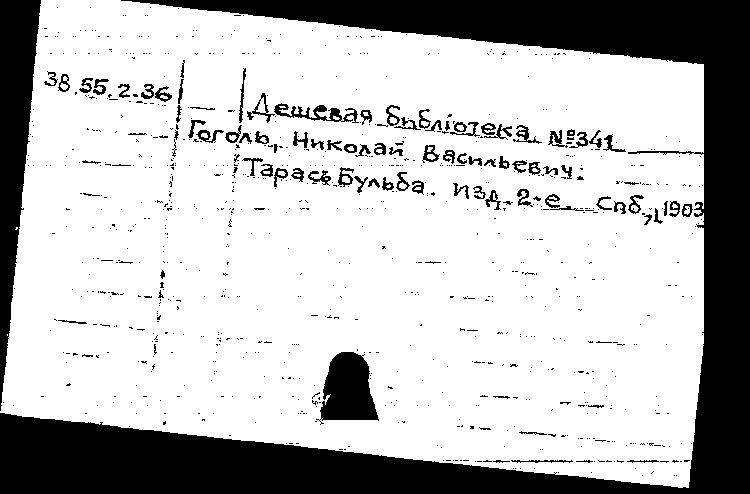 38.55.2.36
Дешевая библіотека. №341
Гоголь, Николай Васильевич.
Тарасъ Бульба. Изд. 2-е. Спб., 1903